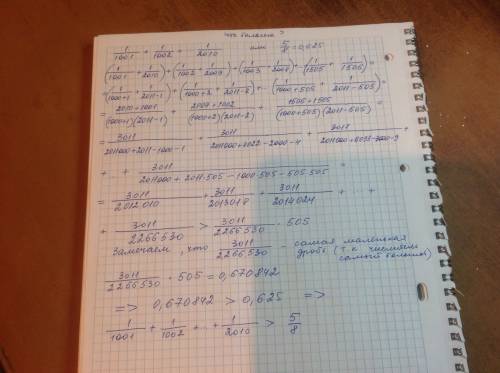 что больше ?
1/1001 + 1/1002 + 1/2010 или 5/8 = 0,625
(1/1001 + 1/2010) + (1/1002 + 1/2009) + (1/1003 + 1/2008) + (1/1505 + 1/1506) =
= (1/(1000+1) + 1/(2011-1)) + (1/(1000+2) + 1/(2011-2)) + (1/(1000+505) + 1/(2011-505)) =
= (2010+1001)/((1000+1)(2011-1)) + (2009+1002)/((1000+2)(2011-2)) + (1505+1505)/((1000+505)(2011-505)) =
= 3011/(2011000+2011-1000-1) + 3011/(2011000+4022-2000-4) + 3011/(2011000+6033-3000-9) +
+ + 3011/(2011000+2011·505-1000·505-505·505) =
= 3011/2012010 + 3011/2013018 + 3011/2014024 + +
+ 3011/2266530 > 3011/2266530 · 505
Замечаем, что 3011/2266530 - самая маленькая
дробь (т.к числитель
самый большой)
3011/2266530 · 505 = 0,670842
=> 0,670842 > 0,625 =>
1/1001 + 1/1002 + .. + 1/2010 > 5/8